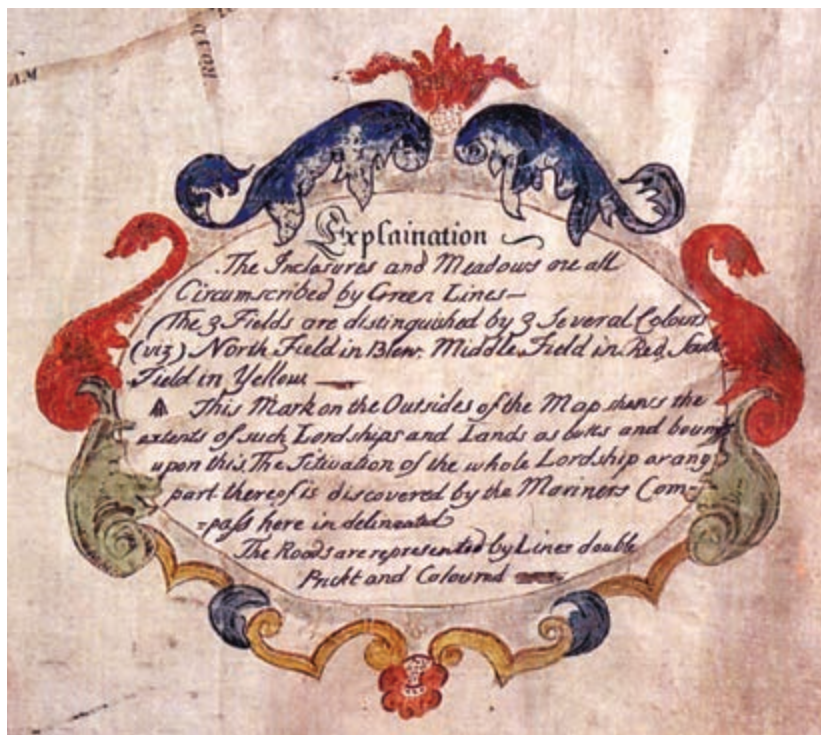 AM
ROAD
Explaination
The Inclosures and Meadows are all
Circumscribed by Green Lines—
The 3 Fields are distinguished by 3 Several Colours
(viz) North Field in Blew. Middle Field in Red, South
Field in Yellow
This Mark on the Outsides of the Map shews the
extents of such Lordships and Lands as butts and bounds
upon this. The Sitwation of the whole Lordship or any
part thereof is discovered by the Mariners Com-
=pass here in delineated
The Roads are represented by Lines double
Prickt and Coloured